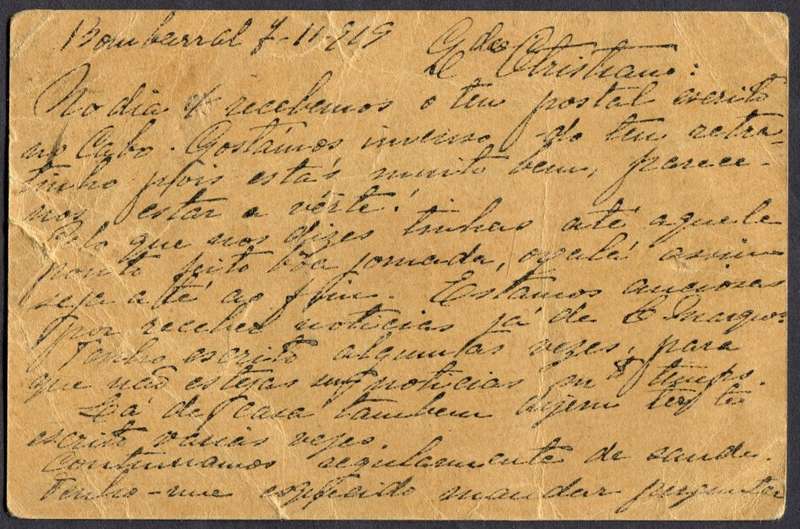 Bombarral 7-11-919
Q.do Christiano:
No dia 4 recebemos o teu postal escrito
no Cabo. Gostámos imenso do teu retra-
tinho pois estás muito bem, parece-
nos estar a vêr-te!
Pelo que nos dizes tinhas até aquele
ponto feito bôa jornada, oxalá assim
seja até ao fim. Estamos anciosos
por receber noticias já de L. Marques.
Tenho escrito algumas vezes, para
que não estejas s/ noticias tempo.
Lá de casa tambem dizem ter-te
escrito varias vezes.
Continuamos regularmente de saude.
Tenho-me esquecido mandar perguntar